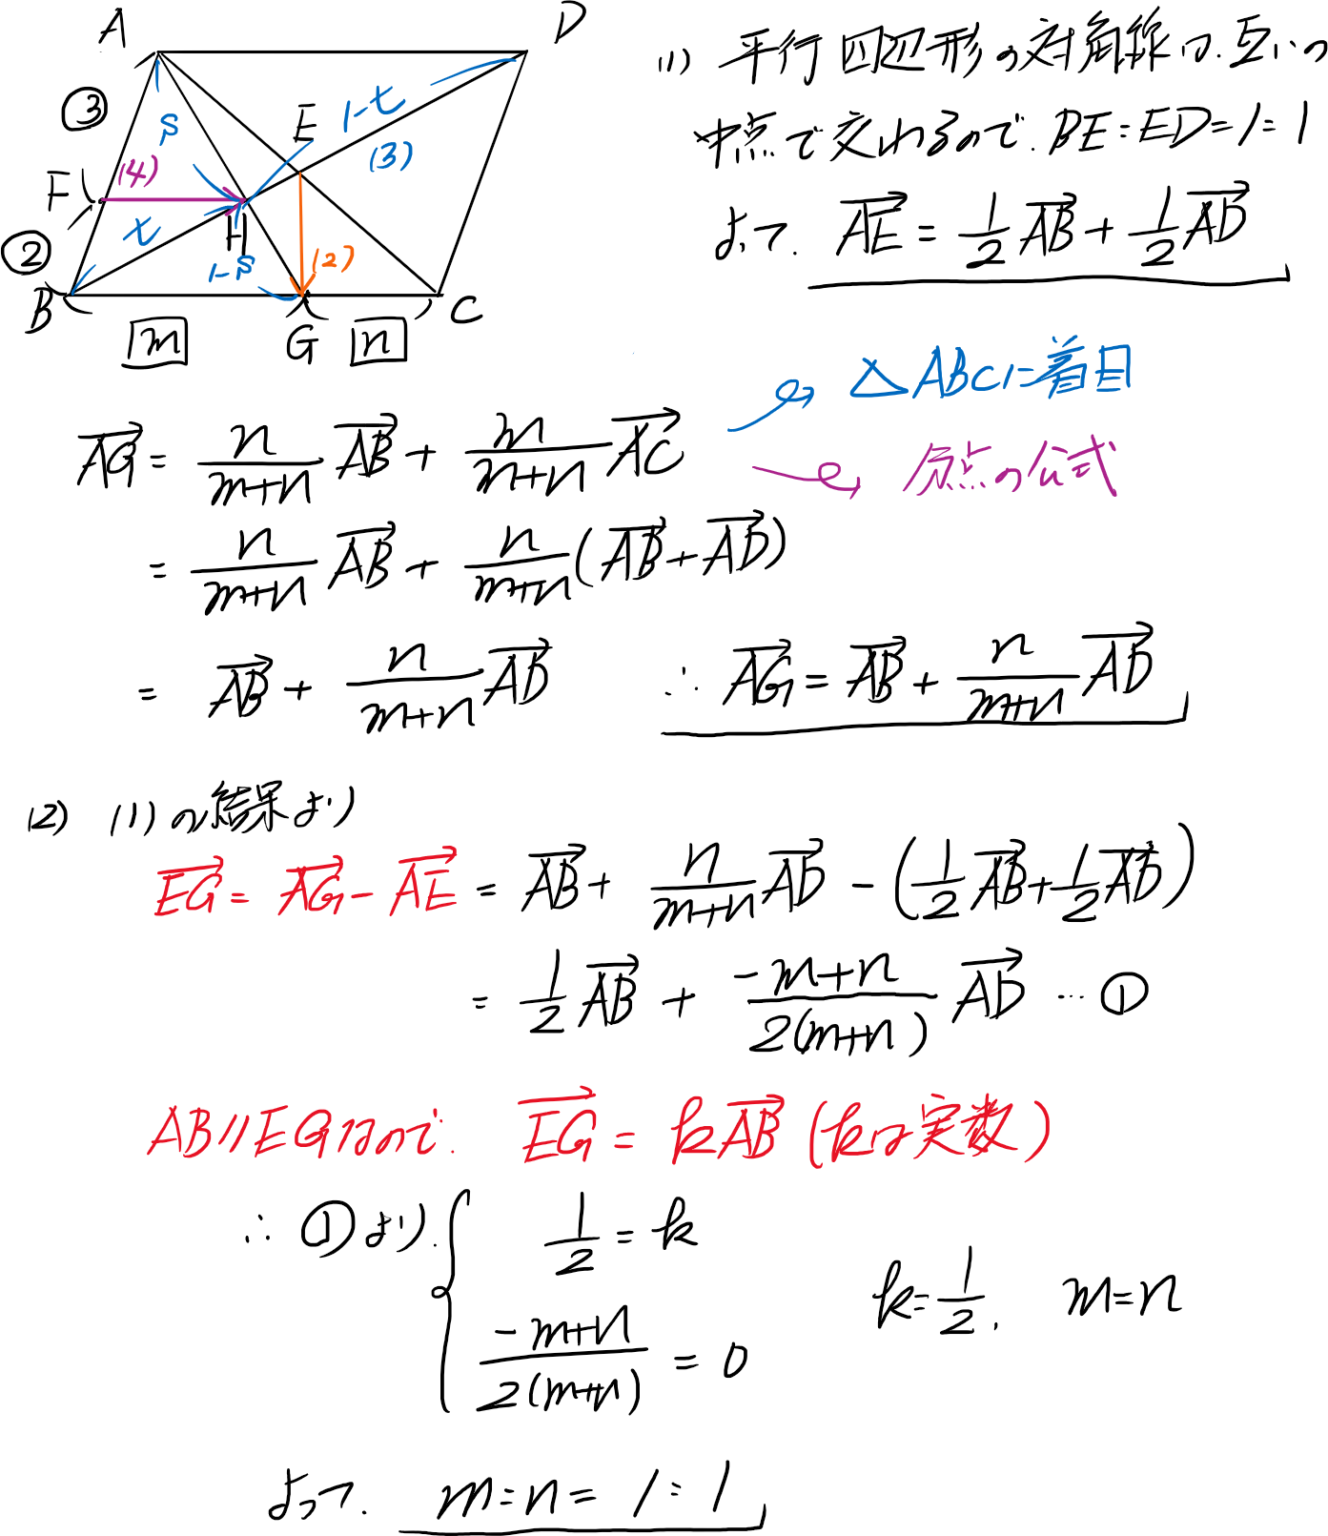 A
D
③
S
E
1-t
(3)
F
(4)
t
H
②
1-S
(2)
B
m
G
n
C
(1) 平行四辺形の対角線は、互いの
中点で交わるので、BE:ED=1:1
よって、$\overrightarrow{AE} = \frac{1}{2}\overrightarrow{AB} + \frac{1}{2}\overrightarrow{AD}$
△ABCに着目
分点の公式
$\overrightarrow{AG} = \frac{n}{m+n}\overrightarrow{AB} + \frac{m}{m+n}\overrightarrow{AC}$
$= \frac{n}{m+n}\overrightarrow{AB} + \frac{n}{m+n}(\overrightarrow{AB} + \overrightarrow{AD})$
$= \overrightarrow{AB} + \frac{n}{m+n}\overrightarrow{AD}$ ∴ $\overrightarrow{AG} = \overrightarrow{AB} + \frac{n}{m+n}\overrightarrow{AD}$
(2) (1)の結果より
$\overrightarrow{EG} = \overrightarrow{AG} - \overrightarrow{AE} = \overrightarrow{AB} + \frac{n}{m+n}\overrightarrow{AD} - (\frac{1}{2}\overrightarrow{AB} + \frac{1}{2}\overrightarrow{AD})$
$= \frac{1}{2}\overrightarrow{AB} + \frac{-m+n}{2(m+n)}\overrightarrow{AD}$ … ①
AB//EGなので、$\overrightarrow{EG} = k\overrightarrow{AB}$ (kは実数)
∴ ①より、
$\frac{1}{2} = k$
$\frac{-m+n}{2(m+n)} = 0$
$k = \frac{1}{2}$, m=n
よって、m:n = 1:1